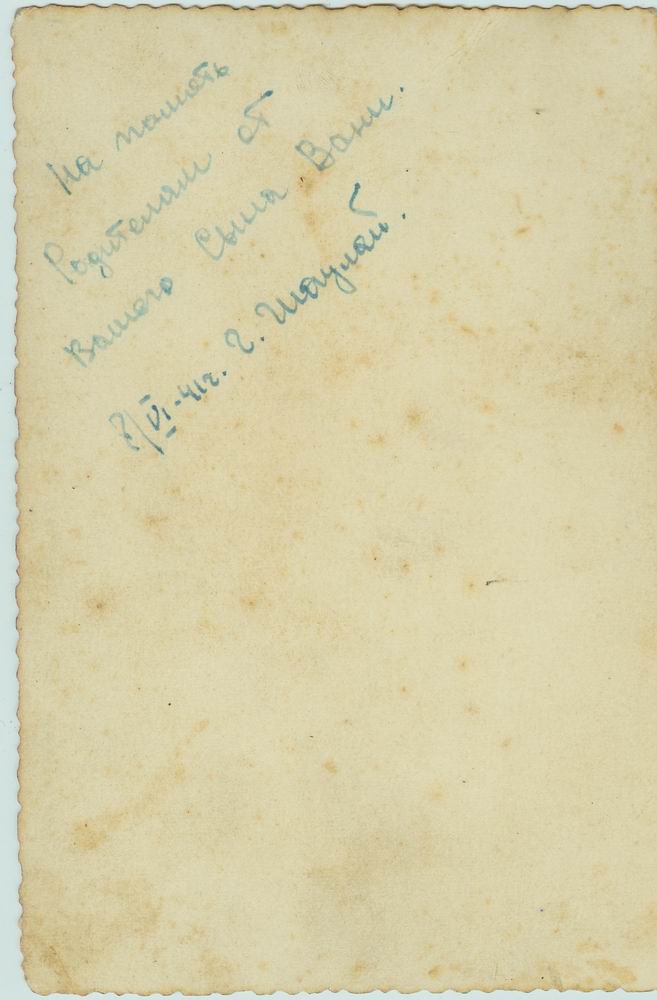 На память
Родителям от
Вашего Сына Вани.
8/VI-41г. г. Шауляй.